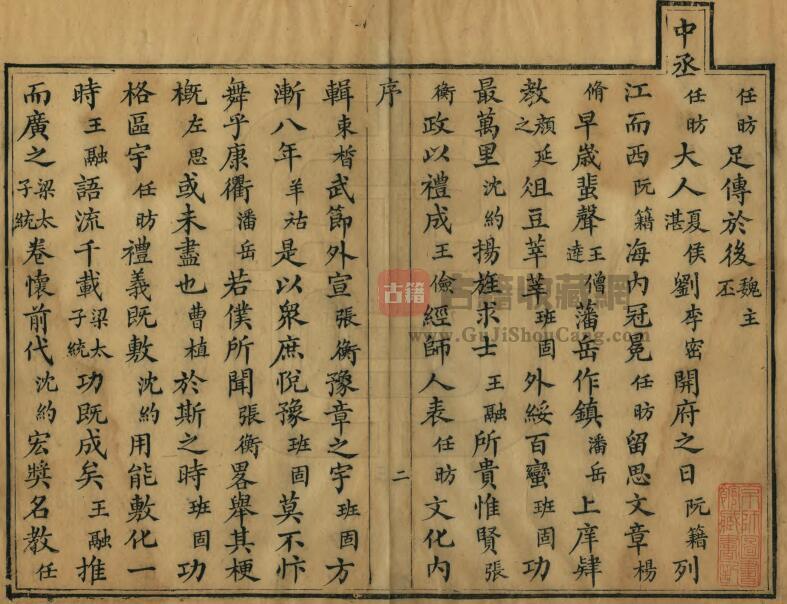 任昉足傳於後魏主丕
中丞任昉大人夏侯湛劉李密開府之日阮籍列
江而西阮籍海內冠冕任昉留思文章楊
脩早歲蜚聲王僧達藩岳作鎮潘岳上庠肄
教顏延之俎豆莘莘班固外綏百蠻班固功
最萬里沈約揚旌求士王融所貴惟賢張
衡政以禮成王儉經師人表任昉文化內
序 二
輯束晳武節外宣張衡豫章之宇班固方
漸八年羊祜是以衆庶悅豫班固莫不忭
舞乎康衢潘岳若僕所聞張衡畧舉其梗
概左思或未盡也曹植於斯之時班固功
格區宇任昉禮義既敷沈約用能敷化一
時王融語流千載梁太子統功既成矣王融推
而廣之梁太子統卷懷前代沈約宏獎名教任
古籍
古籍收藏網
www.GuJiShouCang.com